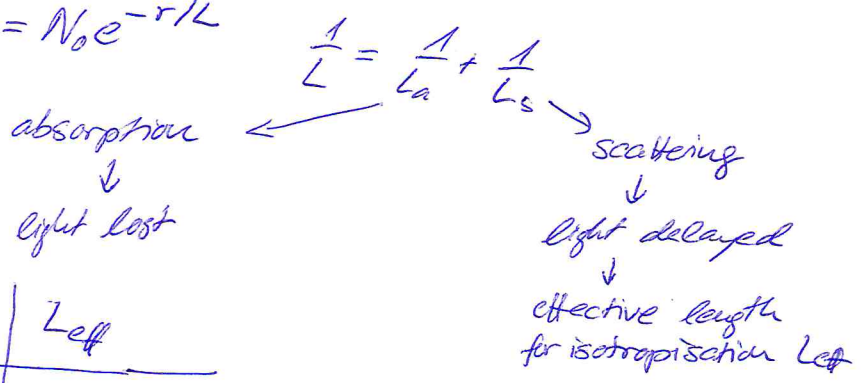 = N₀e^{-r/L}
1/L = 1/La + 1/Ls
absorption
scattering
↓
↓
light lost
light delayed
↓
effective length
for isotropisation Leff
Leff